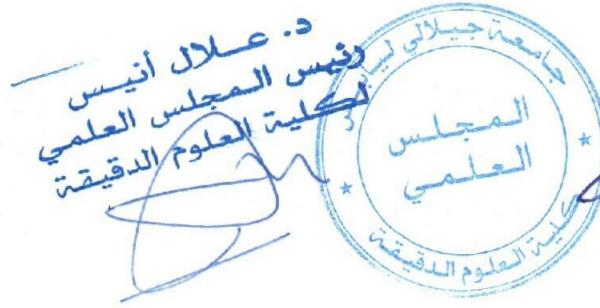 د. عـلال أنيـس
رئيس المجلس العلمي
لكلية العلوم الدقيقة
جامعة جيلالي
المجلس
العلمي
كلية العلوم الدقيقة